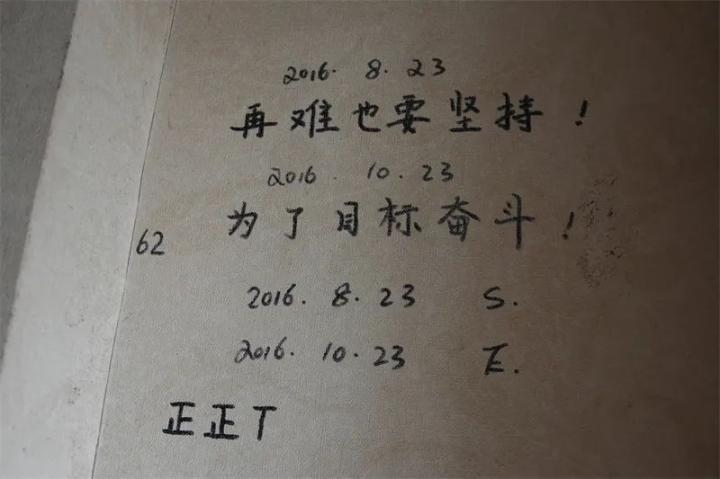 2016. 8. 23
再难也要坚持!
2016. 10. 23
为了目标奋斗!
62
2016. 8. 23 S.
2016. 10. 23 E.
正正丅